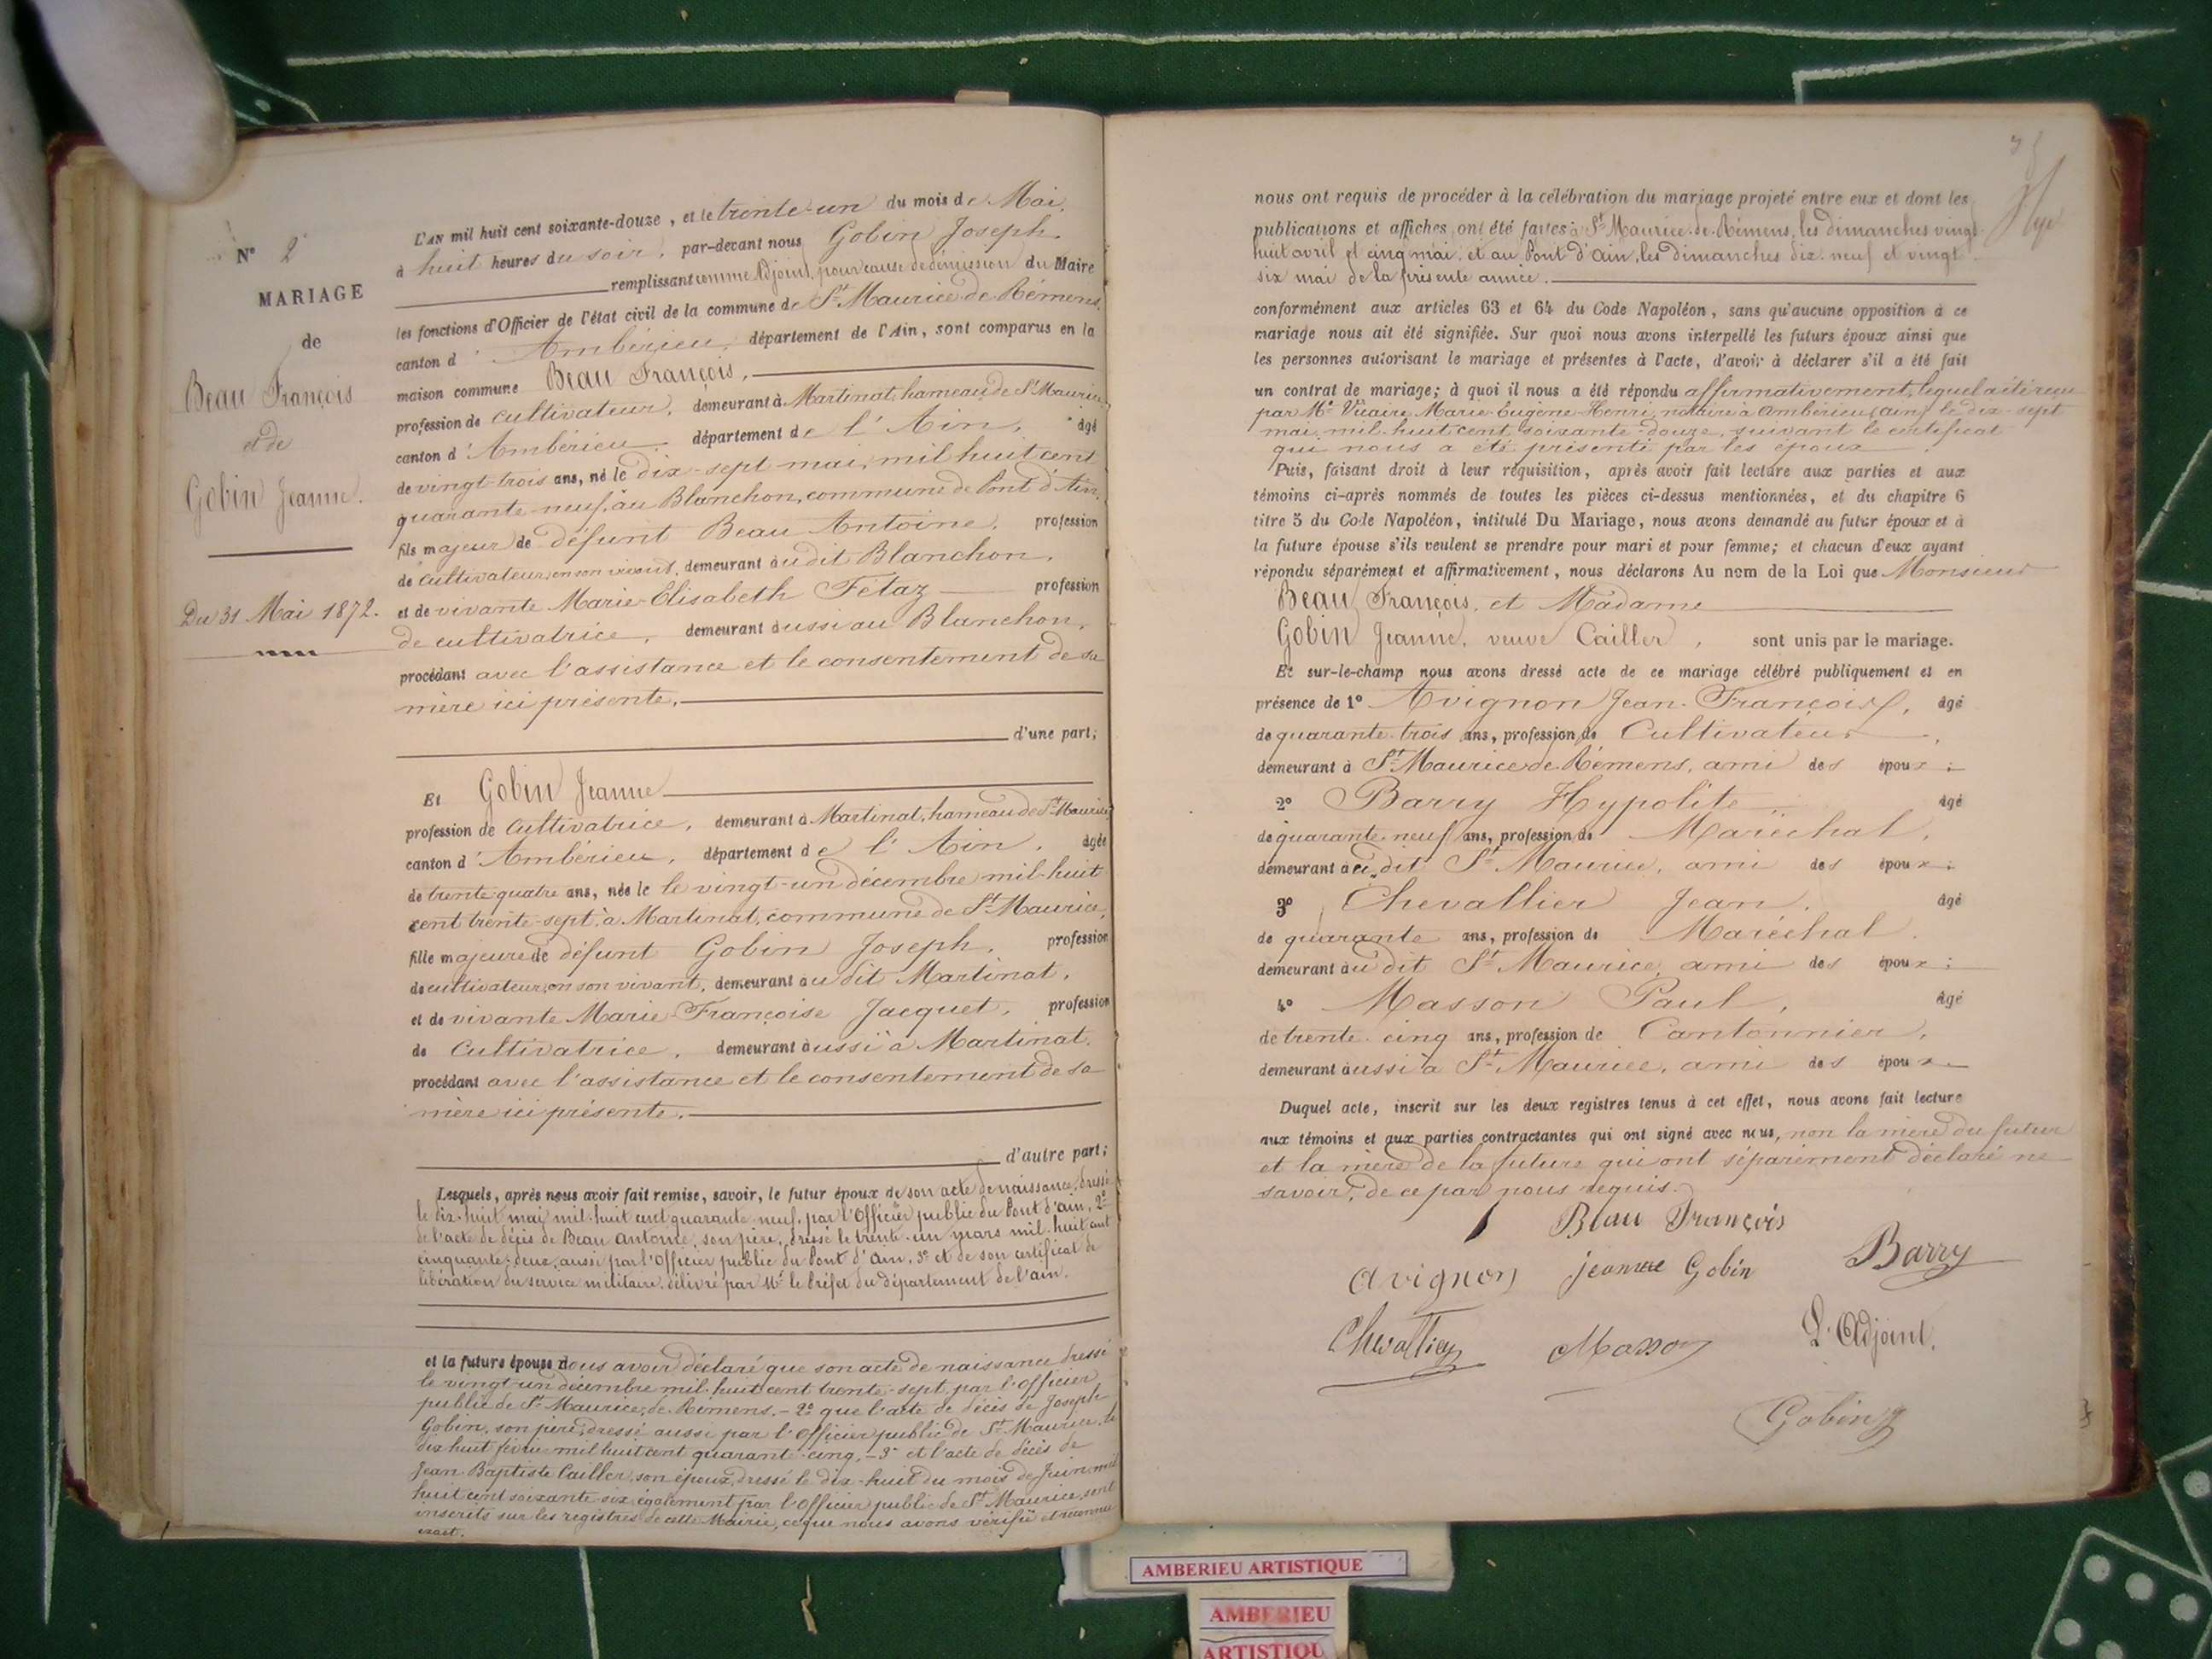 N° 2
MARIAGE
de
Beau François
et de
Gobin Jeanne.
Du 31 Mai 1872.
L'AN mil huit cent soixante-douze, et le trente-un du mois de Mai,
à huit heures du soir, par-devant nous Gobin Joseph
remplissant comme Adjoint, pour cause de démission du Maire
les fonctions d'Officier de l'état civil de la commune de St Maurice-de-Rémens,
canton d'Ambérieu, département de l'Ain, sont comparus en la
maison commune Beau François,
profession de cultivateur, demeurant à Martinat, hameau de St Maurice
canton d'Ambérieu département de l'Ain, âgé
de vingt-trois ans, né le dix-sept mai, mil huit cent
quarante-neuf, au Blanchon, commune de Pont d'Ain,
fils majeur de défunt Beau Antoine, profession
de cultivateur en son vivant, demeurant au dit Blanchon,
et de vivante Marie-Elisabeth Fétaz profession
de cultivatrice, demeurant aussi au Blanchon,
procédant avec l'assistance et le consentement de sa
mère ici présente,
d'une part;
Et Gobin Jeanne
profession de Cultivatrice, demeurant à Martinat, hameau de St Maurice
canton d'Ambérieu, département de l'Ain, âgée
de trente-quatre ans, née le le vingt-un décembre mil-huit
cent trente-sept, à Martinat, commune de St Maurice,
fille majeure de défunt Gobin Joseph, profession
de cultivateur, en son vivant, demeurant au dit Martinat,
et de vivante Marie-Françoise Jacquet, profession
de Cultivatrice, demeurant aussi à Martinat,
procédant avec l'assistance et le consentement de sa
mère ici présente,
d'autre part;
Lesquels, après nous avoir fait remise, savoir, le futur époux de son acte de naissance, dressé
le dix-huit mai mil-huit cent quarante-neuf, par l'Officier public du Pont d'ain, 2°
de l'acte de décès de Beau Antoine, son père, dressé le trente-un mars mil-huit cent
cinquante-deux, aussi par l'Officier public du Pont d'Ain, 3° et de son certificat de
libération du service militaire, délivré par Mr le Préfet du département de l'ain.
et la future épouse nous avoir déclaré que son acte de naissance dressé
le vingt-un décembre mil-huit cent trente-sept par l'Officier
public de St Maurice-de-Rémens, - 2° que l'acte de décès de Joseph
Gobin, son père, dressé aussi par l'Officier public de St Maurice, le
dix huit mil huit cent quarante-cinq, - 3° et l'acte de décès de
Jean Baptiste Cailler, son époux, dressé le dix-huit du mois de Juin mil
huit cent soixante-six également par l'Officier public de St Maurice, sont
inscrits sur les registres de cette Mairie, ce que nous avons vérifié et reconnu
exact.
nous ont requis de procéder à la célébration du mariage projeté entre eux et dont les
publications et affiches ont été faites à St Maurice-de-Rémens, les dimanches vingt
huit avril et cinq mai, et au Pont d'Ain, les dimanches dix-neuf et vingt
six mai de la présente année.
conformément aux articles 63 et 64 du Code Napoléon, sans qu'aucune opposition à ce
mariage nous ait été signifiée. Sur quoi nous avons interpellé les futurs époux ainsi que
les personnes autorisant le mariage et présentes à l'acte, d'avoir à déclarer s'il a été fait
un contrat de mariage; à quoi il nous a été répondu affirmativement, lequel a été reçu
par Me Marie-Eugène-Henri, notaire à Ambérieu (Ain) le dix-sept
mai, mil-huit cent soixante-douze, suivant le certificat
qui nous a été présenté par les époux
Puis, faisant droit à leur réquisition, après avoir fait lecture aux parties et aux
témoins ci-après nommés de toutes les pièces ci-dessus mentionnées, et du chapitre 6
titre 5 du Code Napoléon, intitulé Du Mariage, nous avons demandé au futur époux et à
la future épouse s'ils veulent se prendre pour mari et pour femme; et chacun d'eux ayant
répondu séparément et affirmativement, nous déclarons Au nom de la Loi que Monsieur
Beau François, et Madame
Gobin Jeanne, veuve Cailler, sont unis par le mariage.
Et sur-le-champ nous avons dressé acte de ce mariage célébré publiquement et en
présence de 1° Avignon Jean-François, âgé
de quarante-trois ans, profession de Cultivateur,
demeurant à St Maurice-de-Rémens, ami des époux;
2° Barry Hypolite âgé
de quarante-neuf ans, profession de Maréchal,
demeurant au dit St Maurice, ami des époux;
3° Chevallier Jean, âgé
de quarante ans, profession de Maréchal
demeurant au dit St Maurice, ami des époux;
4° Masson Paul, âgé
de trente-cinq ans, profession de Cantonnier,
demeurant aussi à St Maurice, ami des époux
Duquel acte, inscrit sur les deux registres tenus à cet effet, nous avons fait lecture
aux témoins et aux parties contractantes qui ont signé avec nous, non la mère du futur
et la mère de la future qui ont séparément déclaré ne
savoir, de ce par nous requis.
Beau François
Avignon jeanne Gobin Barry
Chevallier Masson L'Adjoint,
Gobin J
AMBERIEU ARTISTIQUE
AMBERIEU
ARTISTIQU